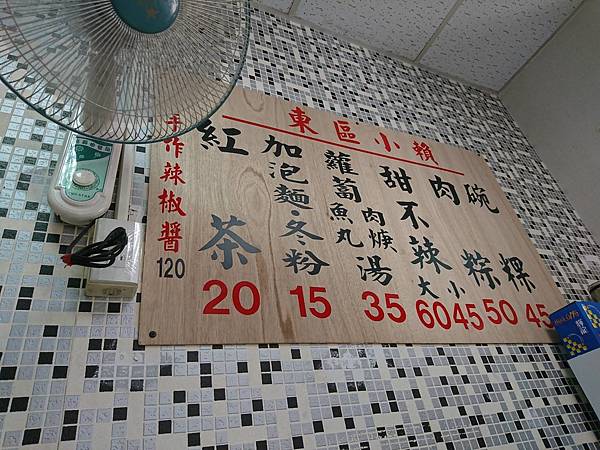 東區小賴
碗粿 45
肉粽 50
甜不辣 大 60 小 45
蘿蔔魚丸 肉焿 湯 35
加泡麵·冬粉 15
紅茶 20
手作辣椒醬 120